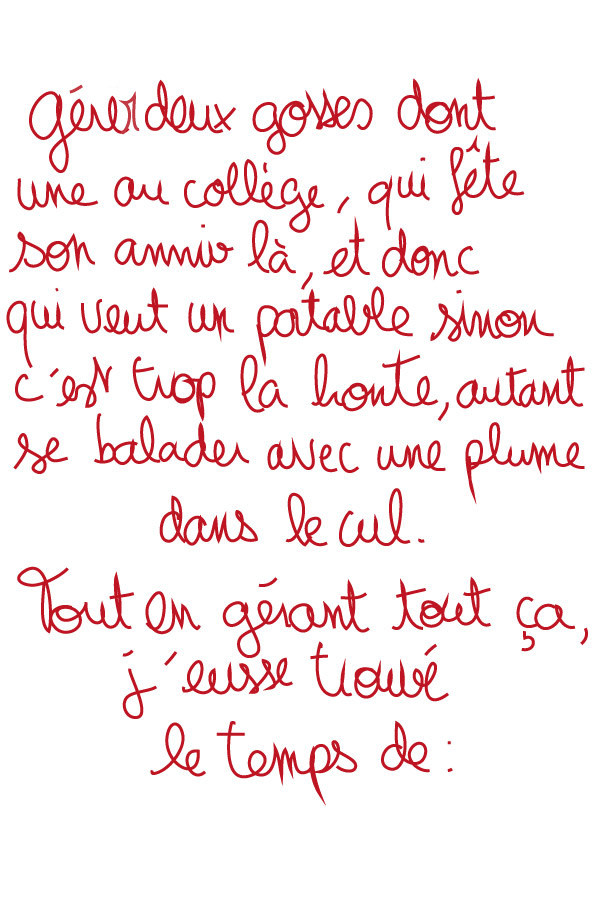 Gérer deux gosses dont
une au collège, qui fête
son anniv là, et donc
qui veut un patable sinon
c'est trop la honte, autant
se balader avec une plume
dans le cul.
Tout en gérant tout ça,
j'eusse trouvé
le temps de :